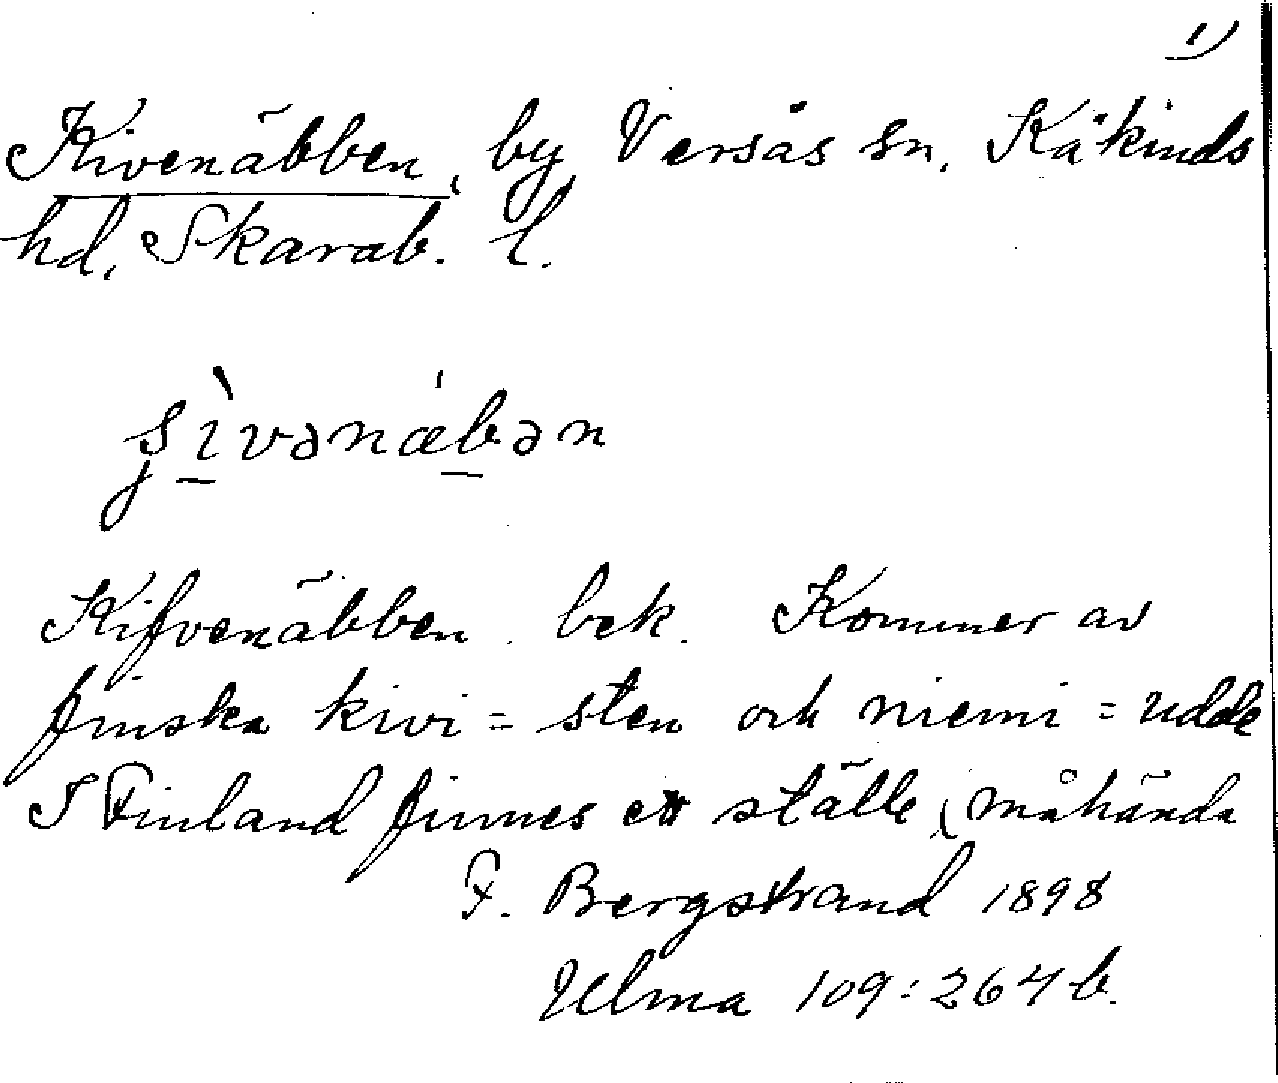 1)
Kivenäbben, by Versås sn, Kåkinds
hd, Skarab. l.
ʂìvənæ̍bən
Kifvenäbben bek. Kommer av
finska kivi = sten och niemi = udde
I Finland finnes ett ställe, måhända
F. Bergstrand 1898
Ulma 109:264 b.